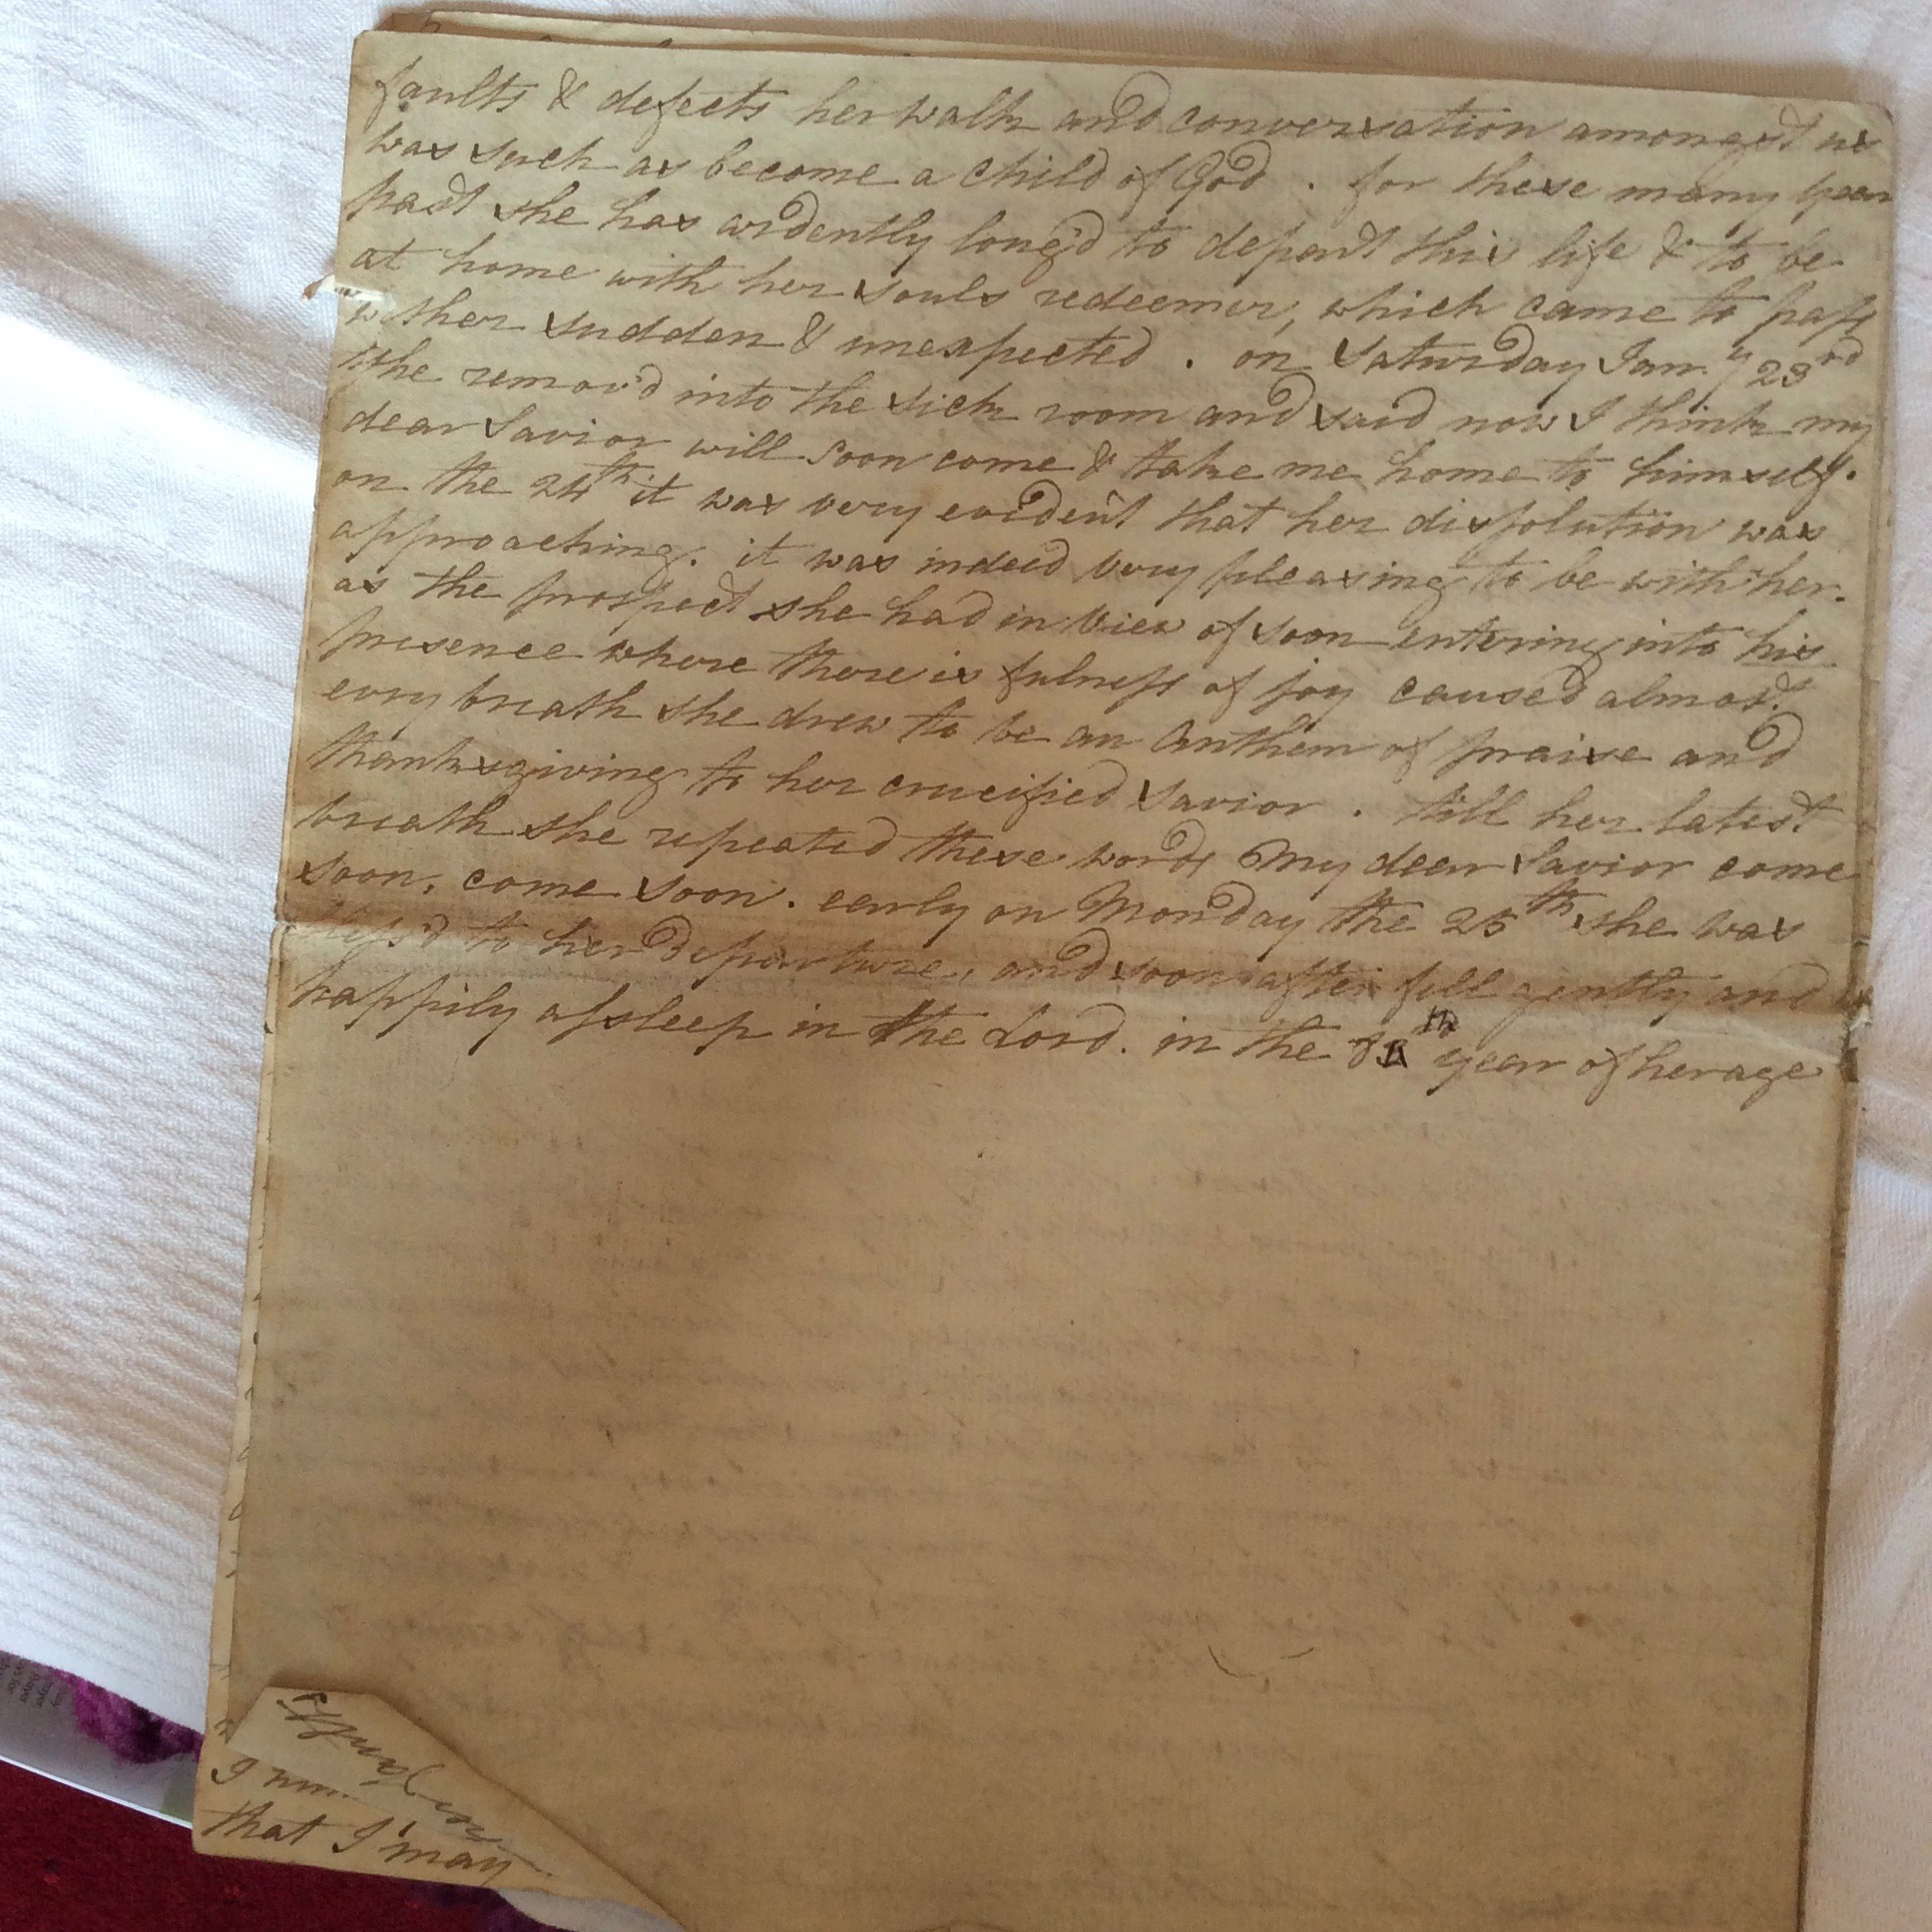 faults & defects her walk and conversation amongst us
was such as become a Child of God . for these many Years
past she has ardently long'd to depart this life & to be
at home with her souls redeemer, which came to pass
rather sudden & unexpected . on Saturday Jan.y 23rd
she remov'd into the sick room and said now I think my
dear Savior will soon come & take me home to himself.
on the 24th it was very evident that her dissolution was
approaching. it was indeed very pleasing to be with her.
as the prospect she had in View of soon entering into his
presence where there is fulness of joy caused almost
every breath she drew to be an Anthem of praise and
thanksgiving to her crucified Savior . till her latest
breath she repeated these words My dear Savior come
soon, come soon. early on Monday the 25th she was
bless'd to her departure, and soon after fell gently and
happily assleep in the Lord. in the year of her age
that I may